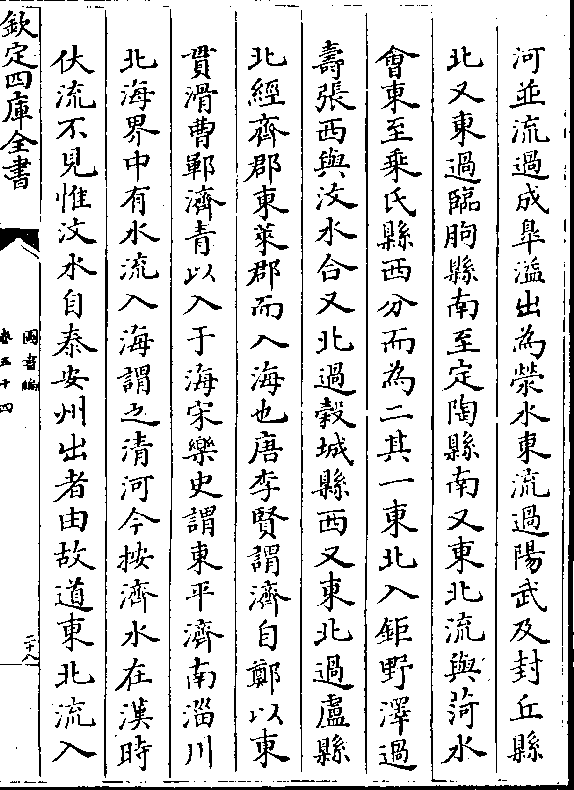 河並流過成臯溢出為滎水東流過陽武及封丘縣
北又東過臨朐縣南至定陶縣南又東北流與菏水
會東至乘氏縣西分而為二其一東北入鉅野澤過
壽張西與汶水合又北過穀城縣西又東北過盧縣
北經齊郡東萊郡而入海也唐李賢謂濟自鄭以東
貫滑曹鄆濟青以入于海宋樂史謂東平濟南淄川
北海界中有水流入海謂之清河今按濟水在漢時
伏流不見惟汶水自泰安州出者由故道東北流入
欽定四庫全書
圖書編
卷五十四
二十八